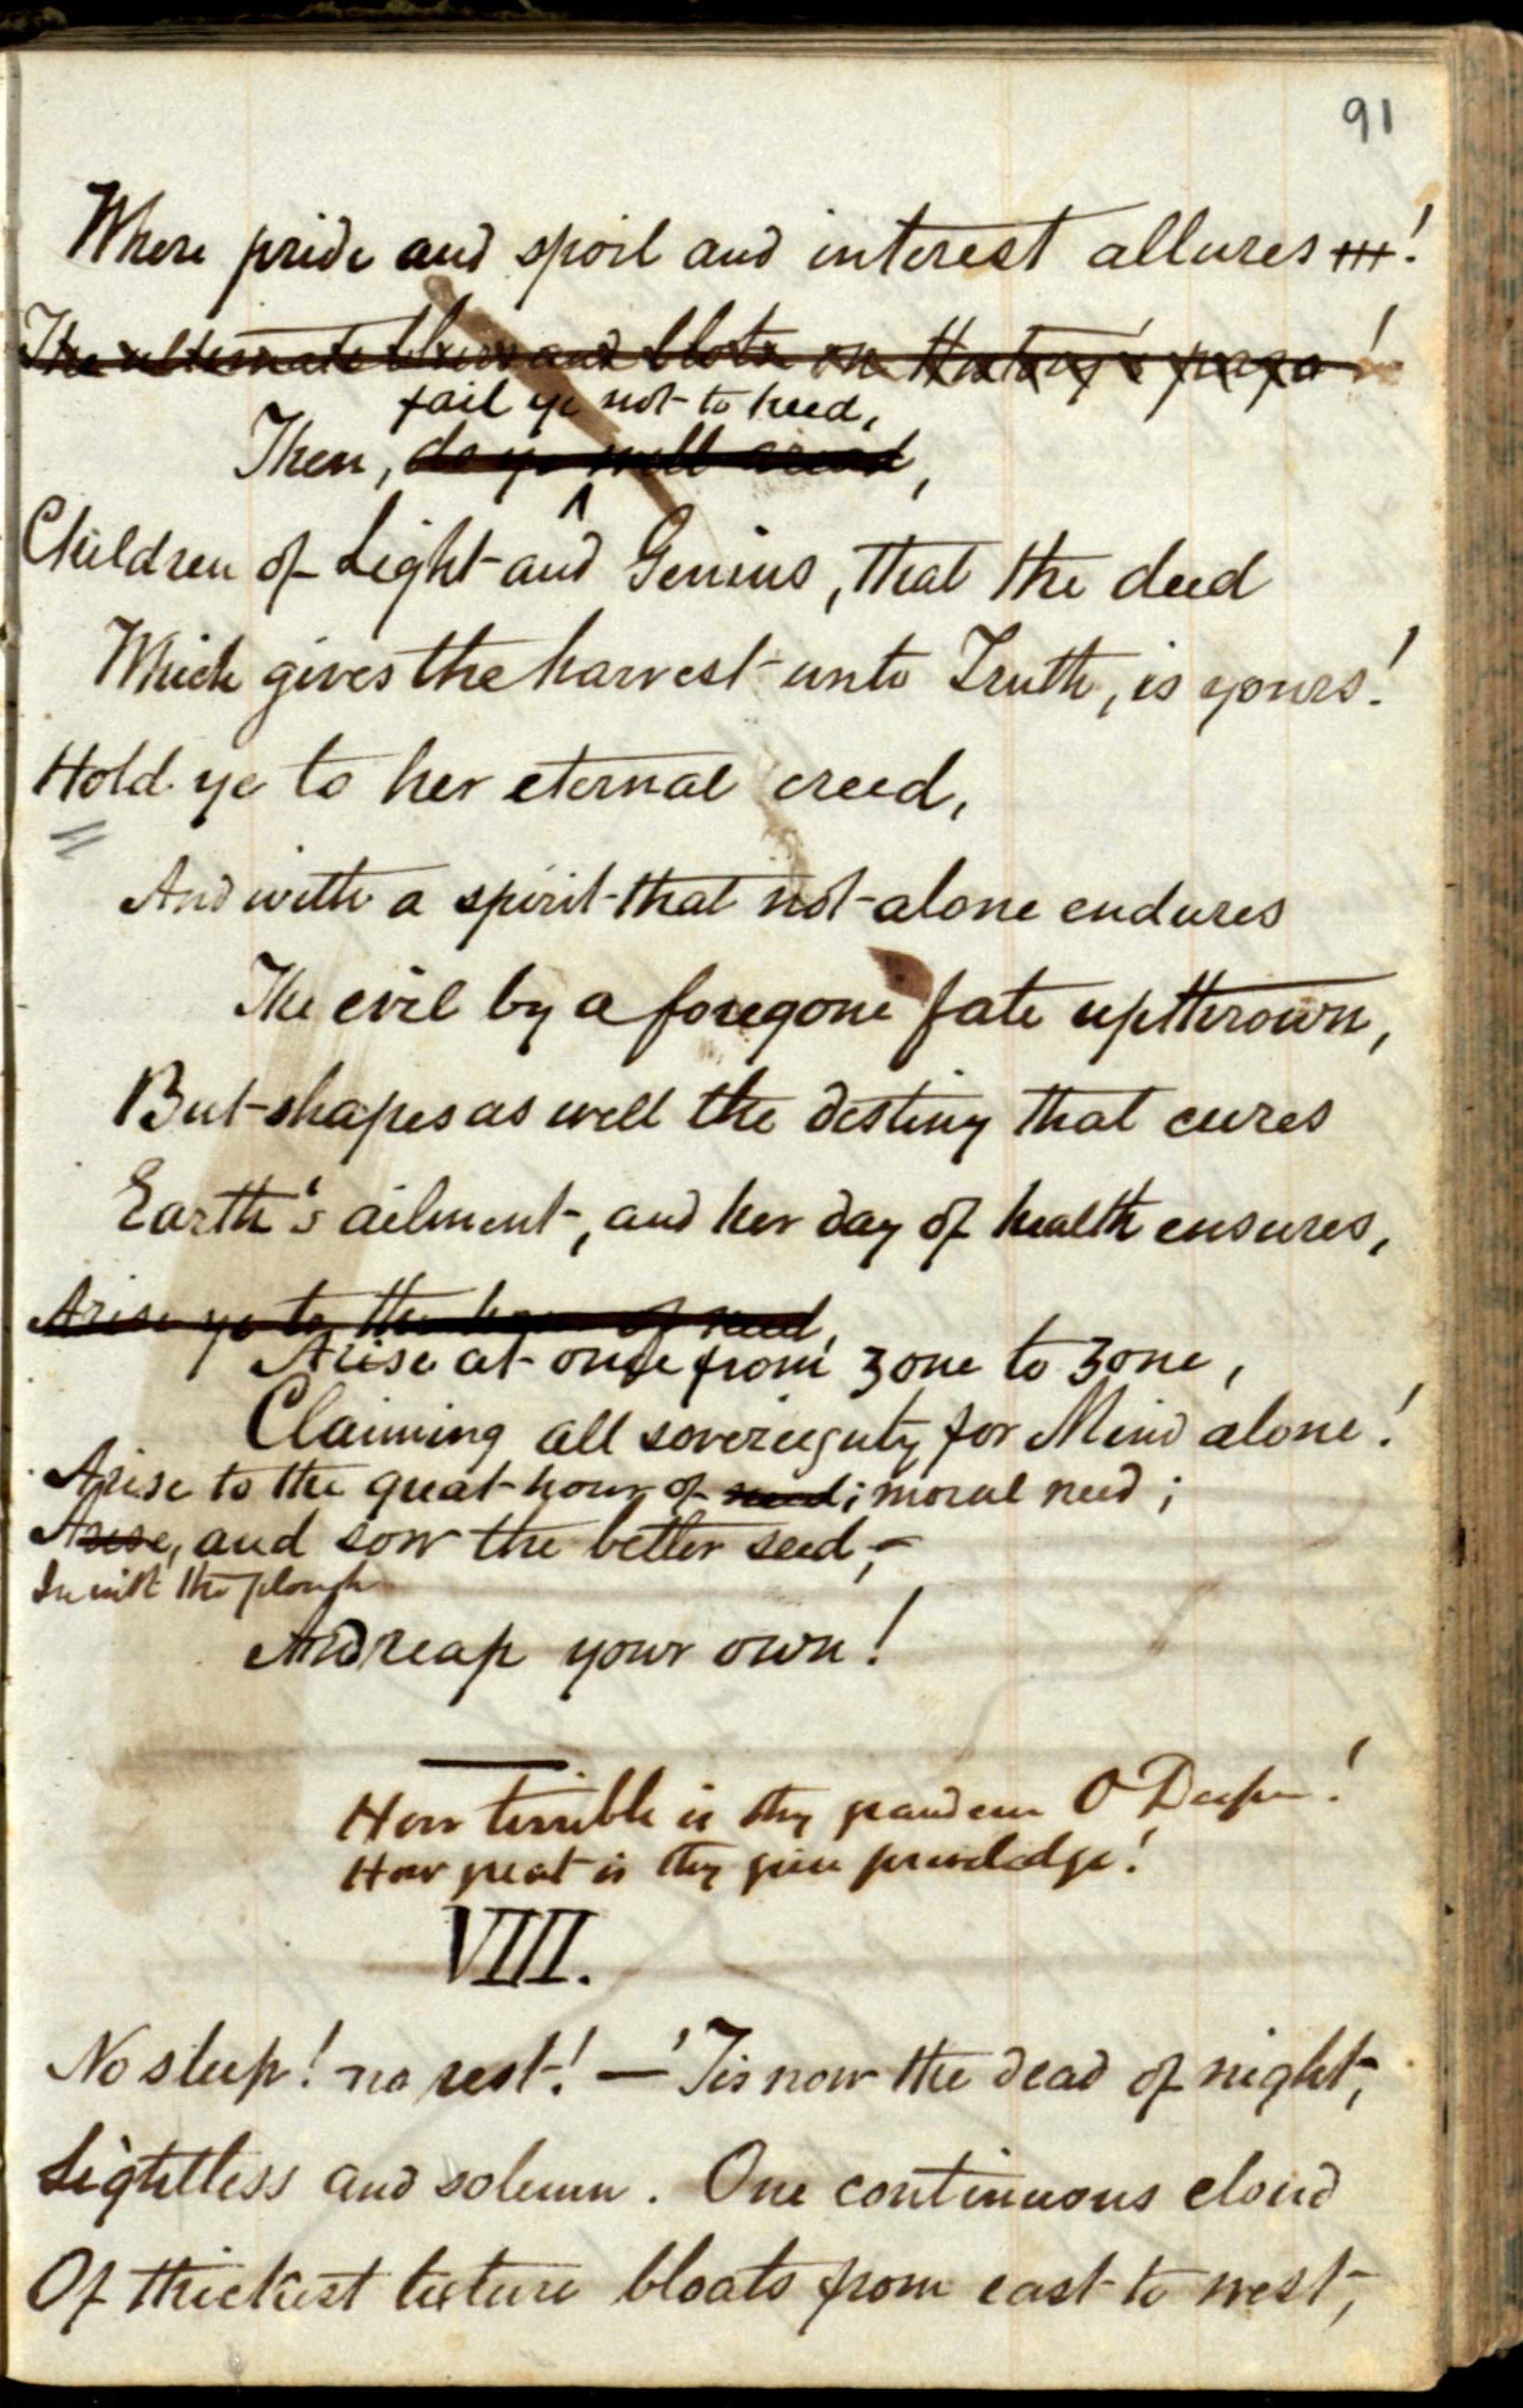 91
Where pride and spoil and interest allures!
The alternate blurs and blots on History's page!
fail ye not to heed,
Then, do ye well aread,
Children of Light and Genius, that the deed
Which gives the harvest unto Truth, is yours!
Hold ye to her eternal creed,
And with a spirit that not alone endures
The evil by a foregone fate upthrown,
But shapes as well the destiny that cures
Earth's ailment, and her day of health ensures,
Arise ye to the hour of need,
Arise at once from zone to zone,
Claiming all sovereignty for Mind alone!
Arise to the great hour of need; moral need;
Arise, and sow the better seed,—
the plough
And reap your own!
How terrible is thy grandeur O Deep!
How great is thy
VIII.
No sleep! no rest! — 'Tis now the dead of night,
Lightless and solemn. One continuous cloud
Of thickest texture bloats from east to west,